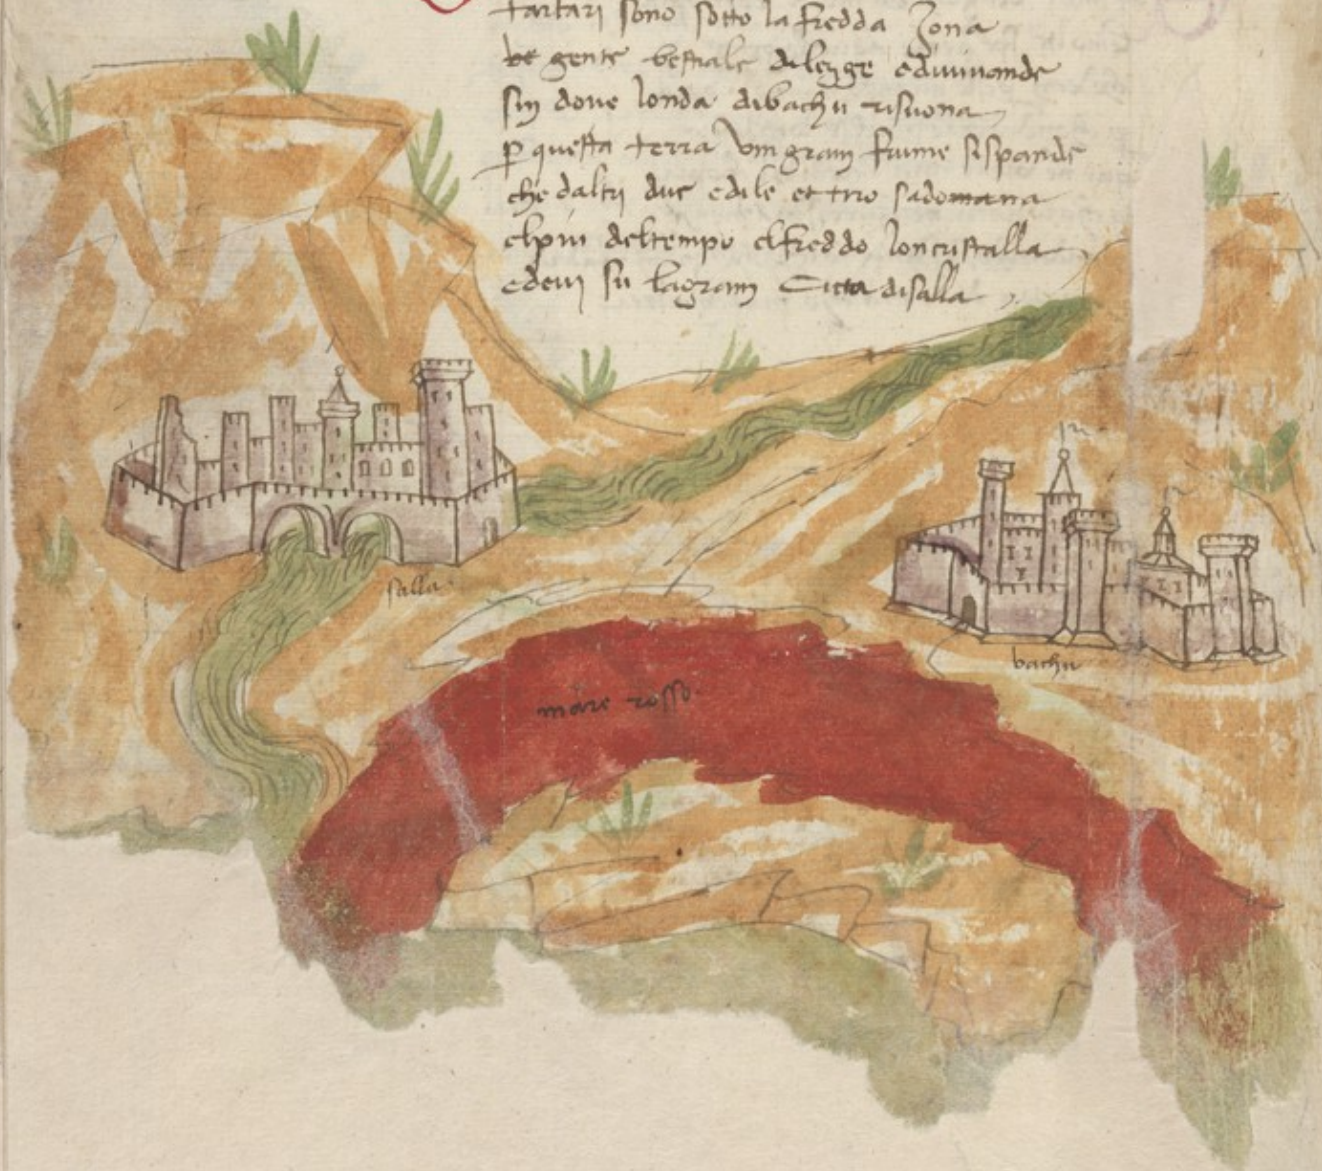 tartari sono sotto la fredda zona
gente bestiale di legge e di vivande
sin dove londa di bachu risuona
p questa terra vun gram fiume si spande
che daltri due edile et tiro
el piu del tempo el freddo loncristalla
edevi su la gram Citta di salla
salla
bachu
mare rosso